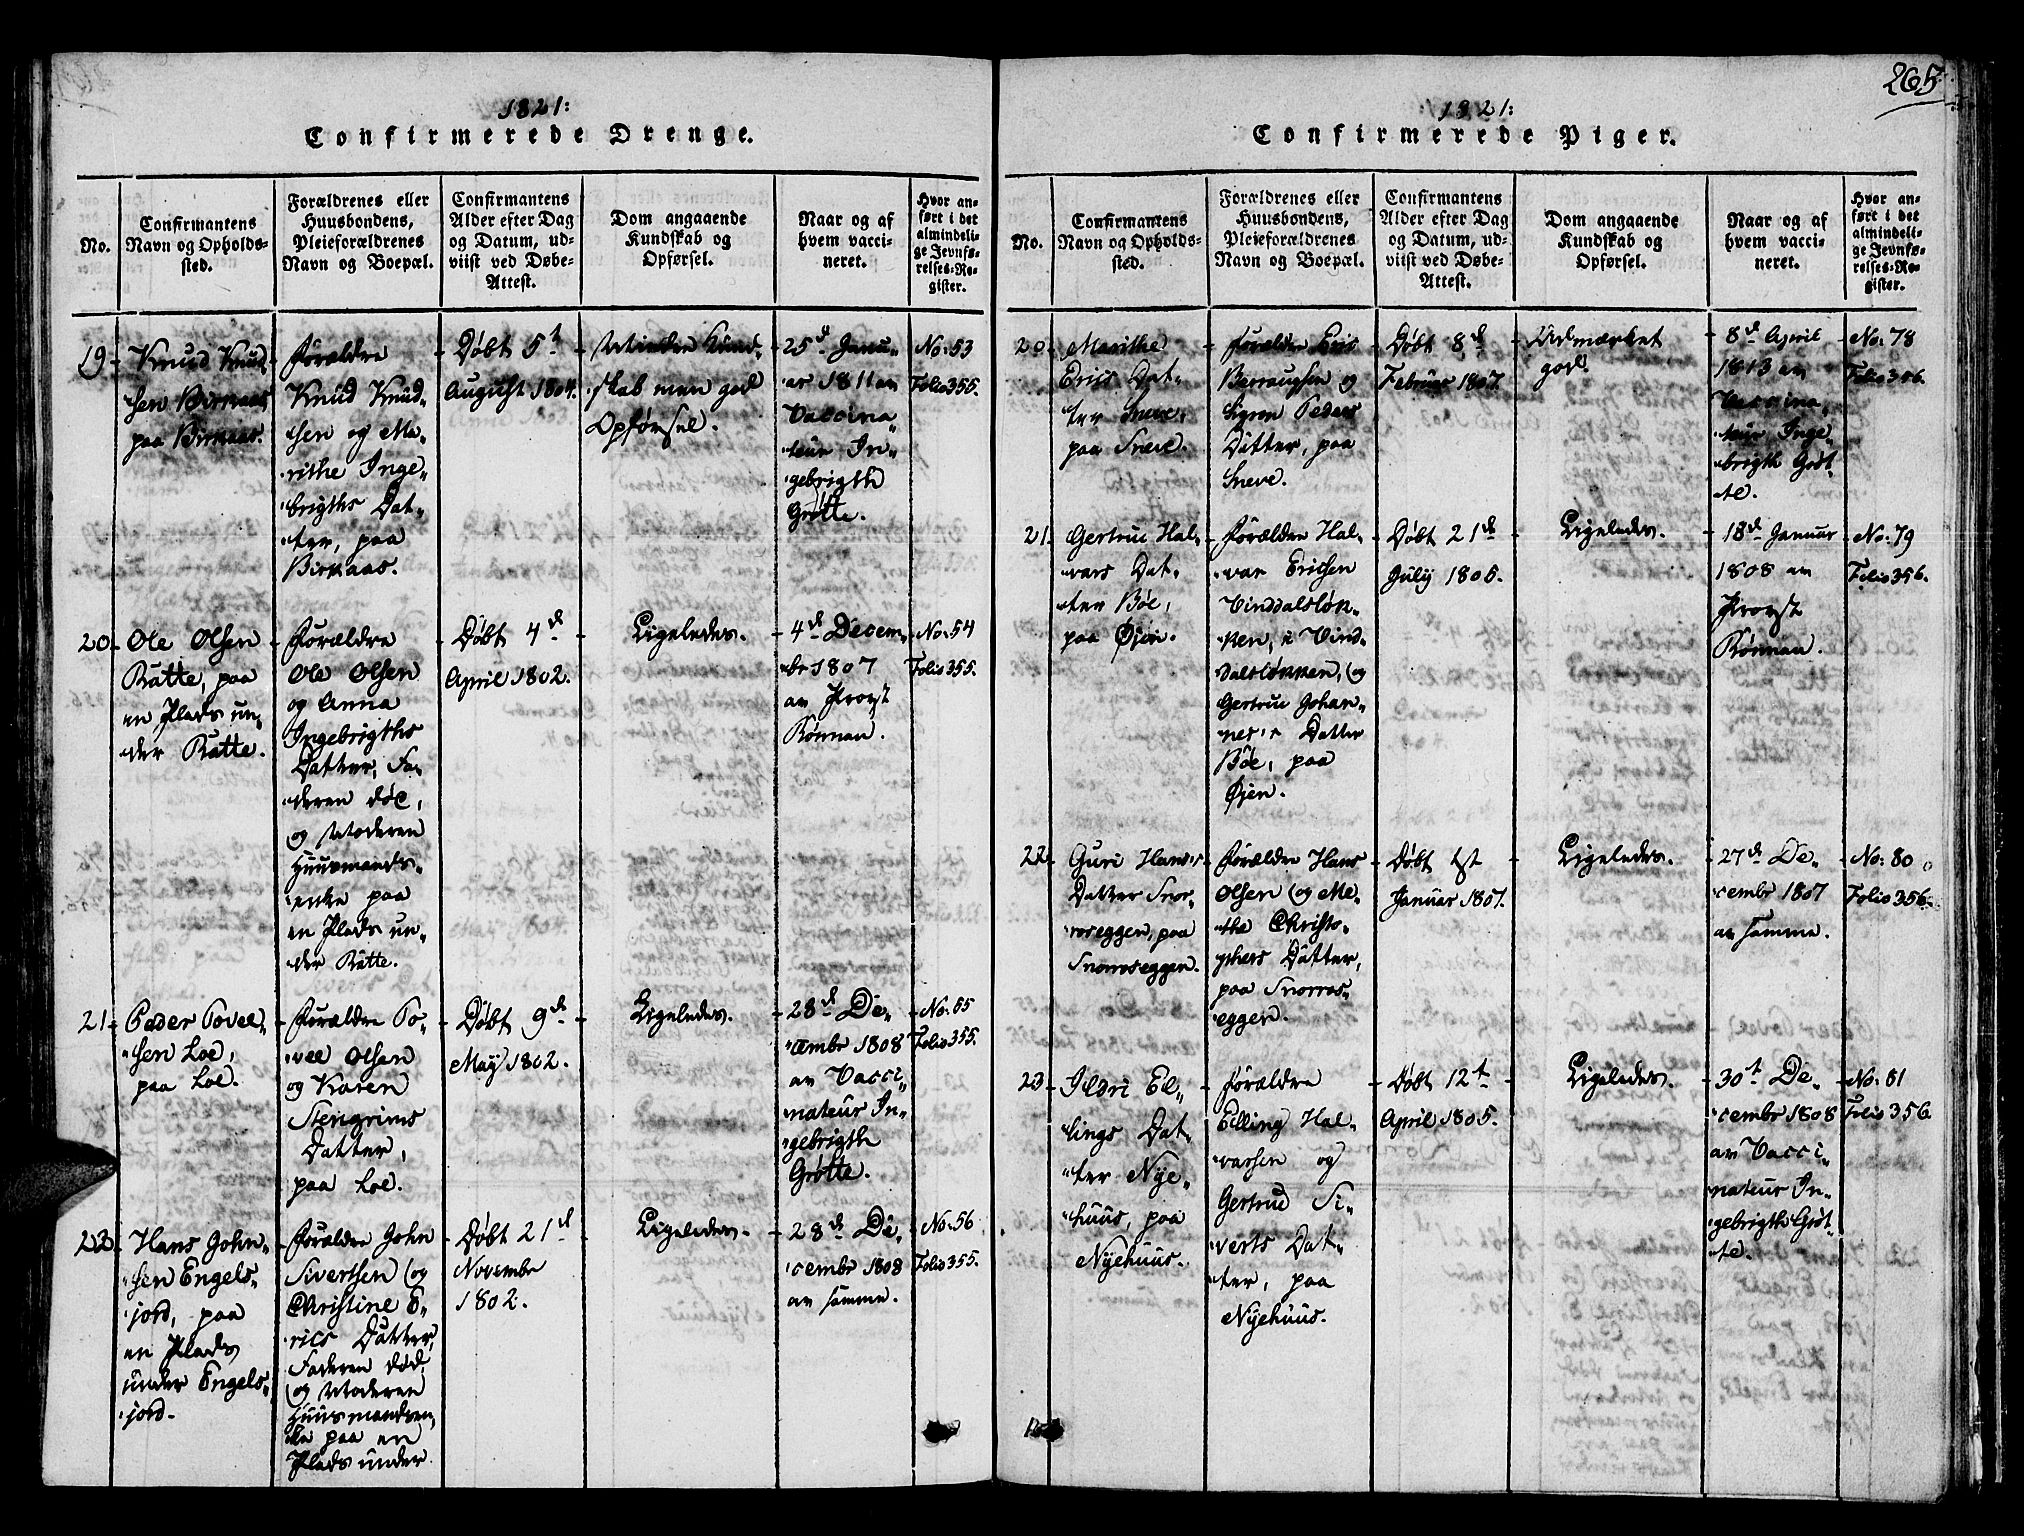 265.
1821:
Confirmerede Drenge.
No.
Confirmantens
Navn og Opholds-
sted.
Forældrenes eller
Huusbondens,
Pleieforældrenes
Navn og Boepæl.
Confirmantens
Alder efter Dag
og Datum, ud-
viist ved Døbe-
Attest.
Dom angaaende
Kundskab og
Opførsel.
Naar og af
hvem vacci-
neret.
Hvor an-
ført i det
almindeli-
ge Jevnfø-
relses-Re-
gister.
19-
Knud Knud
sen Birkaas
paa Birkaas.
Forældre
Knud Knud-
sen og Ma-
rithe Inge-
brigths Dat-
ter, paa
Birkaas.
Døbt 5t
August 1804.
Mindre Kund-
skab men god
Opførsel.
25d Janu-
ar 1811 av
Vaccina-
teur In-
gebrigth
Grøtte.
No: 53
Folio 355.
20-
Ole Olsen
Ratte, paa
en Plads un-
der Ratte.
Forældre
Ole Olsen
og Anna
Ingebrigths
Datter, Fa-
deren død,
og Moderen
Huusmands-
enke paa
en Plads un-
der Ratte.
Døbt 4d
April 1802.
Ligeledes.
4d Decem-
br 1807
av Provst
Rønnau.
No: 54
Folio 355.
21-
Peder Povel-
sen Loe,
paa Loe.
Forældre Po-
vel Olsen
og Karen
Stengrims
Datter,
paa Loe.
Døbt 9d
May 1802.
Ligeledes.
28d De-
cembr 1808
av Vacci-
nateur In-
gebrigth
Grøtte.
No: 55
Folio 355.
22-
Hans John-
sen Engels-
jord, paa
en Plads
under Engels-
jord.
Forældre John
Sivertsen og
Christine E-
rics Datter,
Faderen død,
og Moderen
Huusmandsen-
ke paa en
Plads under
Døbt 21d
Novembr
1802.
Ligeledes.
28d De-
cembr 1808
av samme.
No: 56
Folio 355.
1821:
Confirmerede Piger.
No.
Confirmantens
Navn og Opholds-
sted.
Forældrenes eller
Huusbondens,
Pleieforældrenes
Navn og Boepæl.
Confirmantens
Alder efter Dag
og Datum, ud-
viist ved Døbe-
Attest.
Dom angaaende
Kundskab og
Opførsel.
Naar og af
hvem vacci-
neret.
Hvor an-
ført i det
almindeli-
ge Jevnfø-
relses-Re-
gister.
20-
Marithe
Erics Dat-
ter Sneve,
paa Sneve.
Forældre Eric
Berraugsen og
Sigrou Peders
Datter, paa
Sneve.
Døbt 8d
Februar 1807.
Udmærket
god.
8d April
1813 av
Vaccina-
teur Inge-
brigth Grøt-
te.
No: 78
Folio 356.
21-
Gertrue Hal-
vars Dat-
ter Bøe,
paa Øien.
Forældre Hal-
var Ericsen
Vinddalsløn-
ken, i Vind-
dalslønken, og
Gertrue Johan-
nes's Datter
Bøe, paa
Øjen.
Døbt 21de
July 1805.
Ligeledes.
18d Januar
1808 av
Provst
Rønnau.
No: 79
Folio 356.
22-
Guri Hans's
Datter Snor-
roseggen, paa
Snorroseggen.
Forældre Hans
Olsen og Me-
the Christo-
phers Datter,
paa Snorros-
eggen.
Døbt 1st
Januar 1807.
Ligeledes.
27de De-
cembr 1807
av samme.
No: 80
Folio 356.
23-
Ildri El-
lings Dat-
ter Nye-
huus, paa
Nyehuus.
Forældre
Elling Hal-
varsen og
Gertrud Si-
verts Dat-
ter, paa
Nyehuus.
Døbt 12t
April 1805.
Ligeledes.
30t De-
cembr 1808
av Vacci-
nateur In-
gebrigth Grøt-
te.
No: 81
Folio 356.